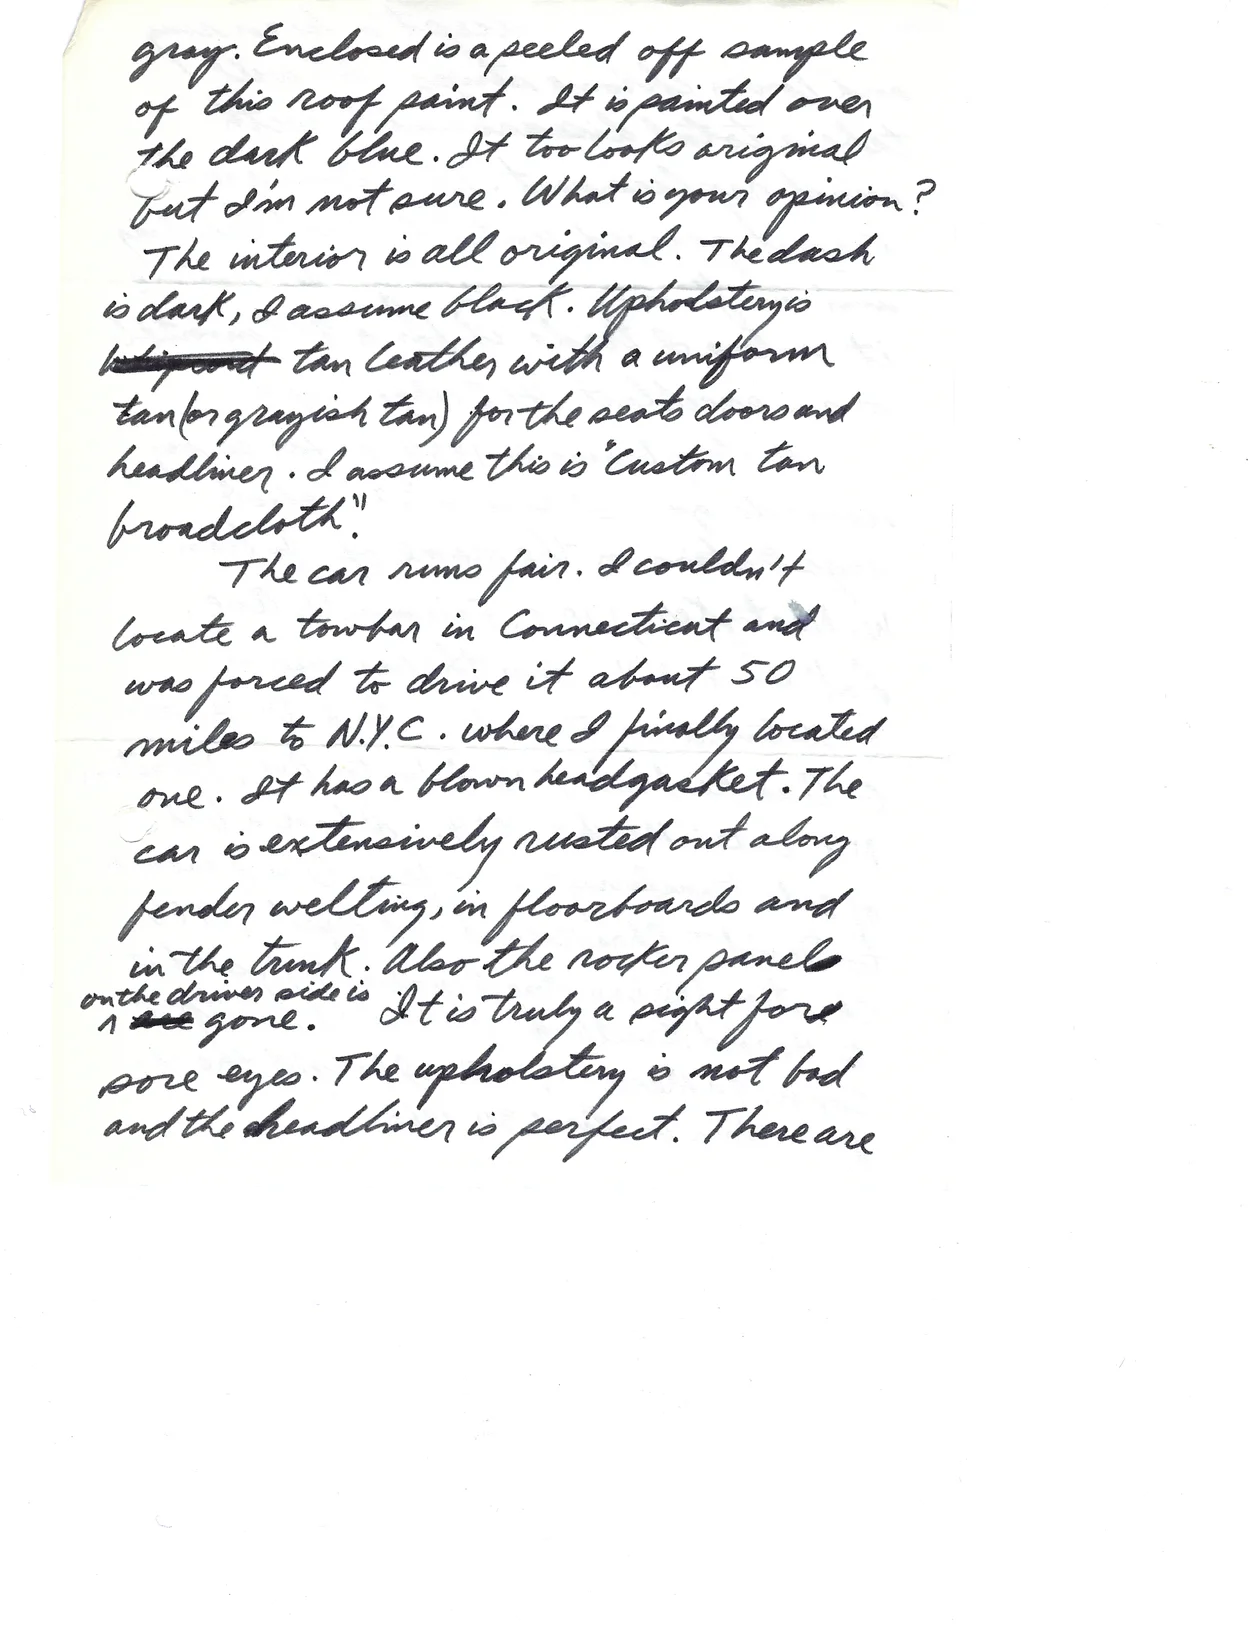 gray. Enclosed is a peeled off sample
of this roof paint. It is painted over
the dark blue. It too looks original
but I'm not sure. What is your opinion?
The interior is all original. The dash
is dark, I assume black. Upholstery is
tan leather with a uniform
tan (or grayish tan) for the seats doors and
headliner. I assume this is "Custom tan
broadcloth".
The car runs fair. I couldn't
locate a towbar in Connecticut and
was forced to drive it about 50
miles to N.Y.C. where I finally located
one. It has a blown headgasket. The
car is extensively rusted out along
fender welting, in floorboards and
in the trunk. Also the rocker panel
on the driver side is
gone. It is truly a sight fore
sore eyes. The upholstery is not bad
and the headliner is perfect. There are